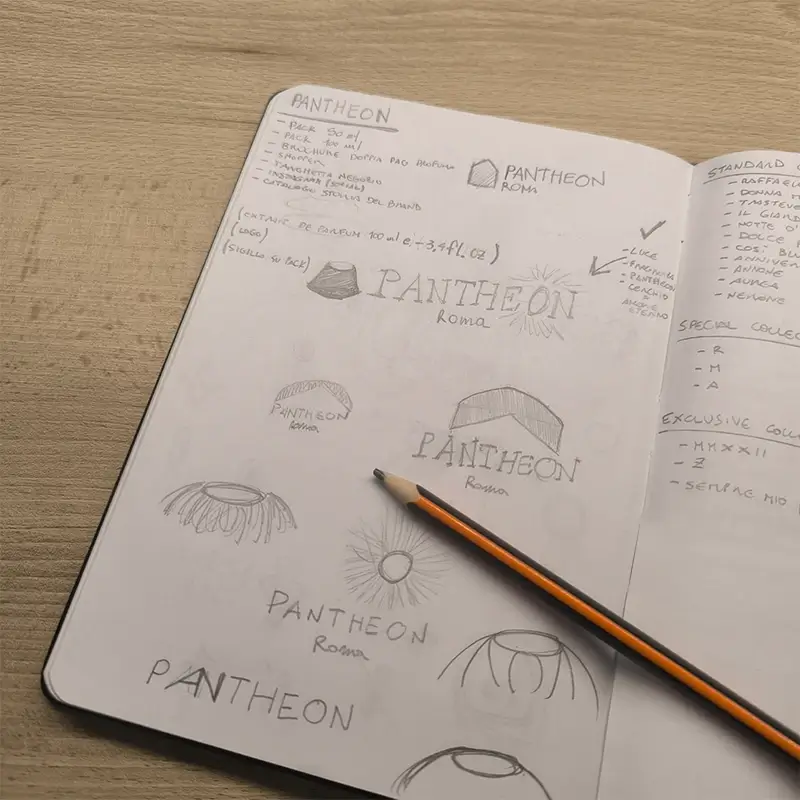 PANTHEON
- PACK 50 ml
- PACK 100 ml
- BROCHURE DOPPIA PAG PROFUMO
- SHOPPER
- TARGHETTA NEGOZIO
- INSTAGRAM (SOCIAL)
- CATALOGO STORIA DEL BRAND
(EXTRAIT DE PARFUM 100 ml e - 3,4 fl. OZ)
(LOGO)
(SIGILLO SU PACK)
PANTHEON
ROMA
- LUCE
- PANTHEON
- CERCHIO
ETERNO
PANTHEON
Roma
PANTHEON
Roma
PANTHEON
Roma
PANTHEON
Roma
PANTHEON
STANDARD
- RAFFAEL
- DONNA
- TRASTEVE
- IL GIARD
- NOTTE D'
- DOLCE
- COSÌ BLU
- ANNIVER
- ANNONE
- AUREA
- NERONE
SPECIAL COLLEC
- R
- M
- A
EXCLUSIVE COLL
- MMXXII
- Z
- SEMPRE MIO